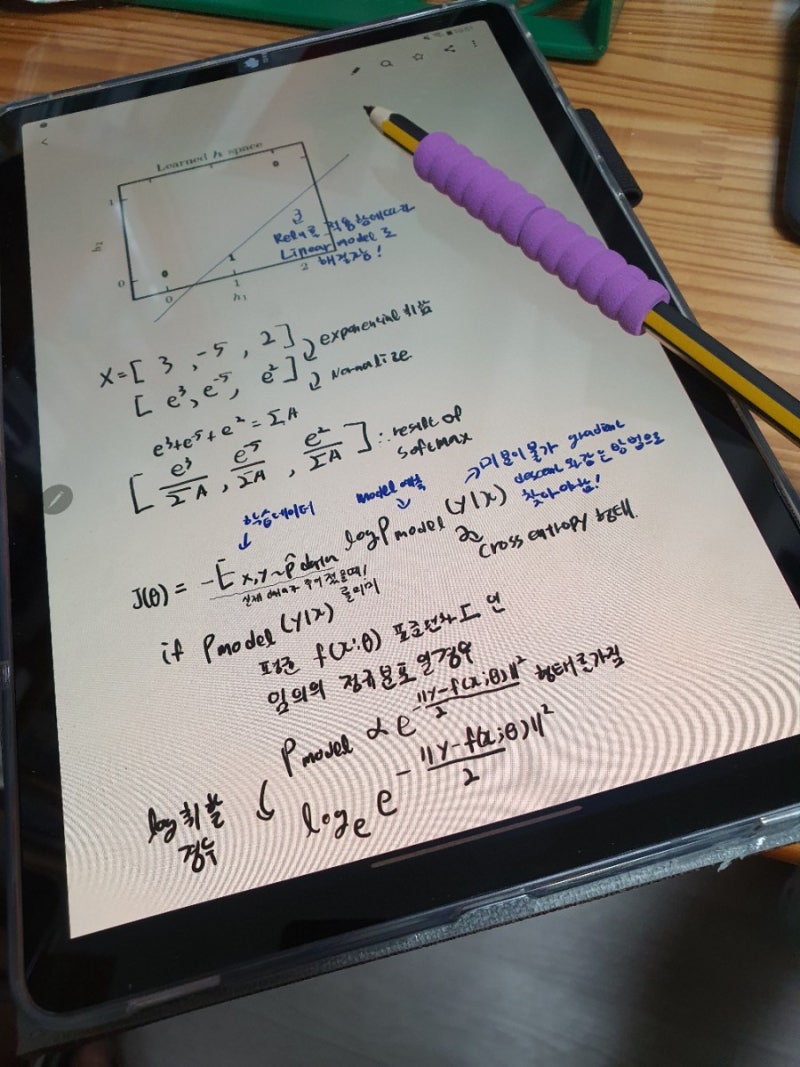 Learned h space
1
h₂
0
0
1
2
h₁
즉
Relu를 적용함에따라
Linear model로
해결가능!
X = [ 3 , -5 , 2 ] exponential 취함
[ e³, e⁻⁵, e² ] Normalize
e³+e⁻⁵+e² = ΣA
[ e³/ΣA , e⁻⁵/ΣA , e²/ΣA ] ∴ result of
softmax
학습데이터
model 예측
→ 미분이불가 gradient
descent 와같은 방법으로
찾아야함!
J(θ) = -E x,y~p̂data log Pmodel (y|x)
실제 data가 주어졌을때!
를의미
Cross entropy 형태.
if Pmodel (y|x)
평균 f(x;θ) 표준편차 I 인
임의의 정규분포일경우
Pmodel ∝ e^-||y-f(x;θ)||²/2 형태를가짐
log취할
경우
logₑ e^-||y-f(x;θ)||²/2